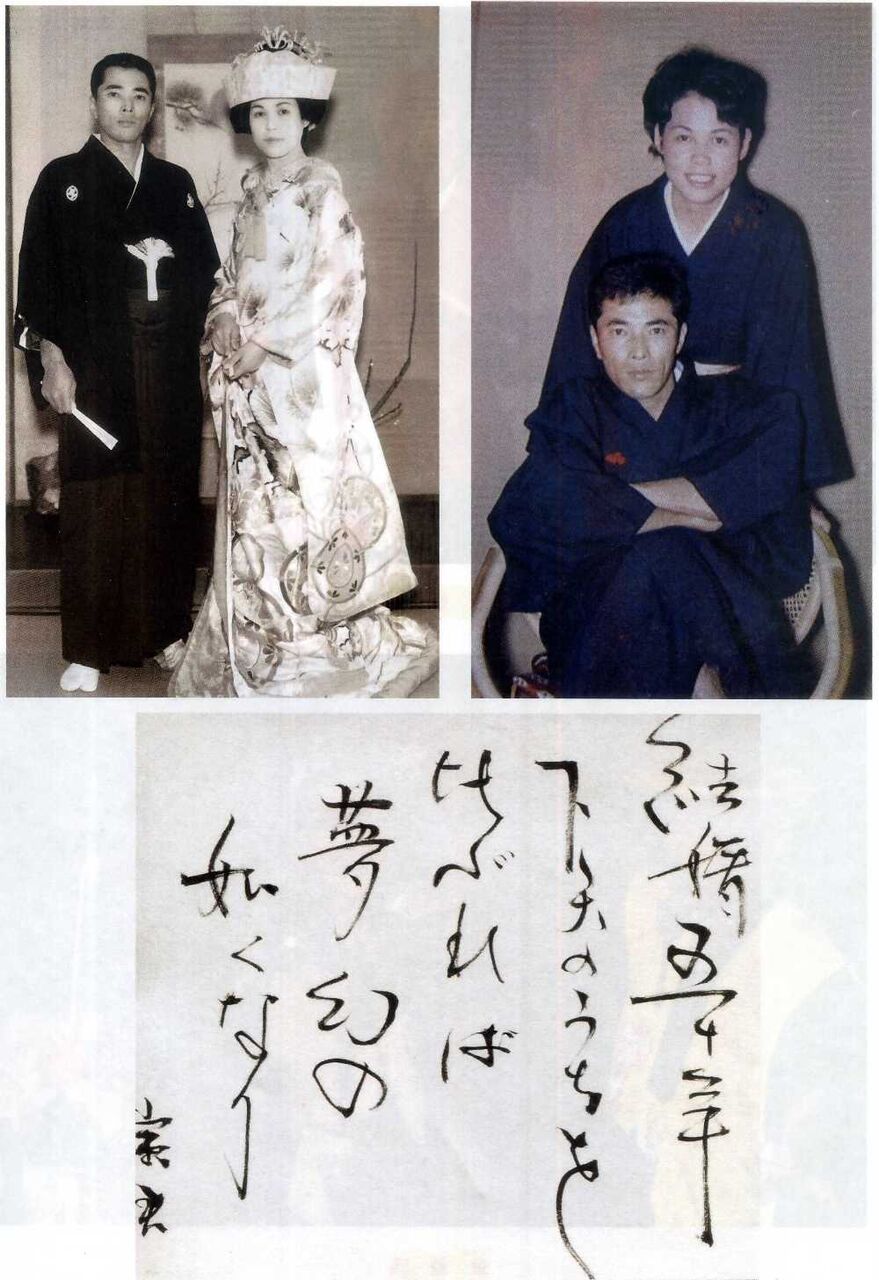 結婚五十年
下天のうちを
比ぶれば
夢幻の
如くなり